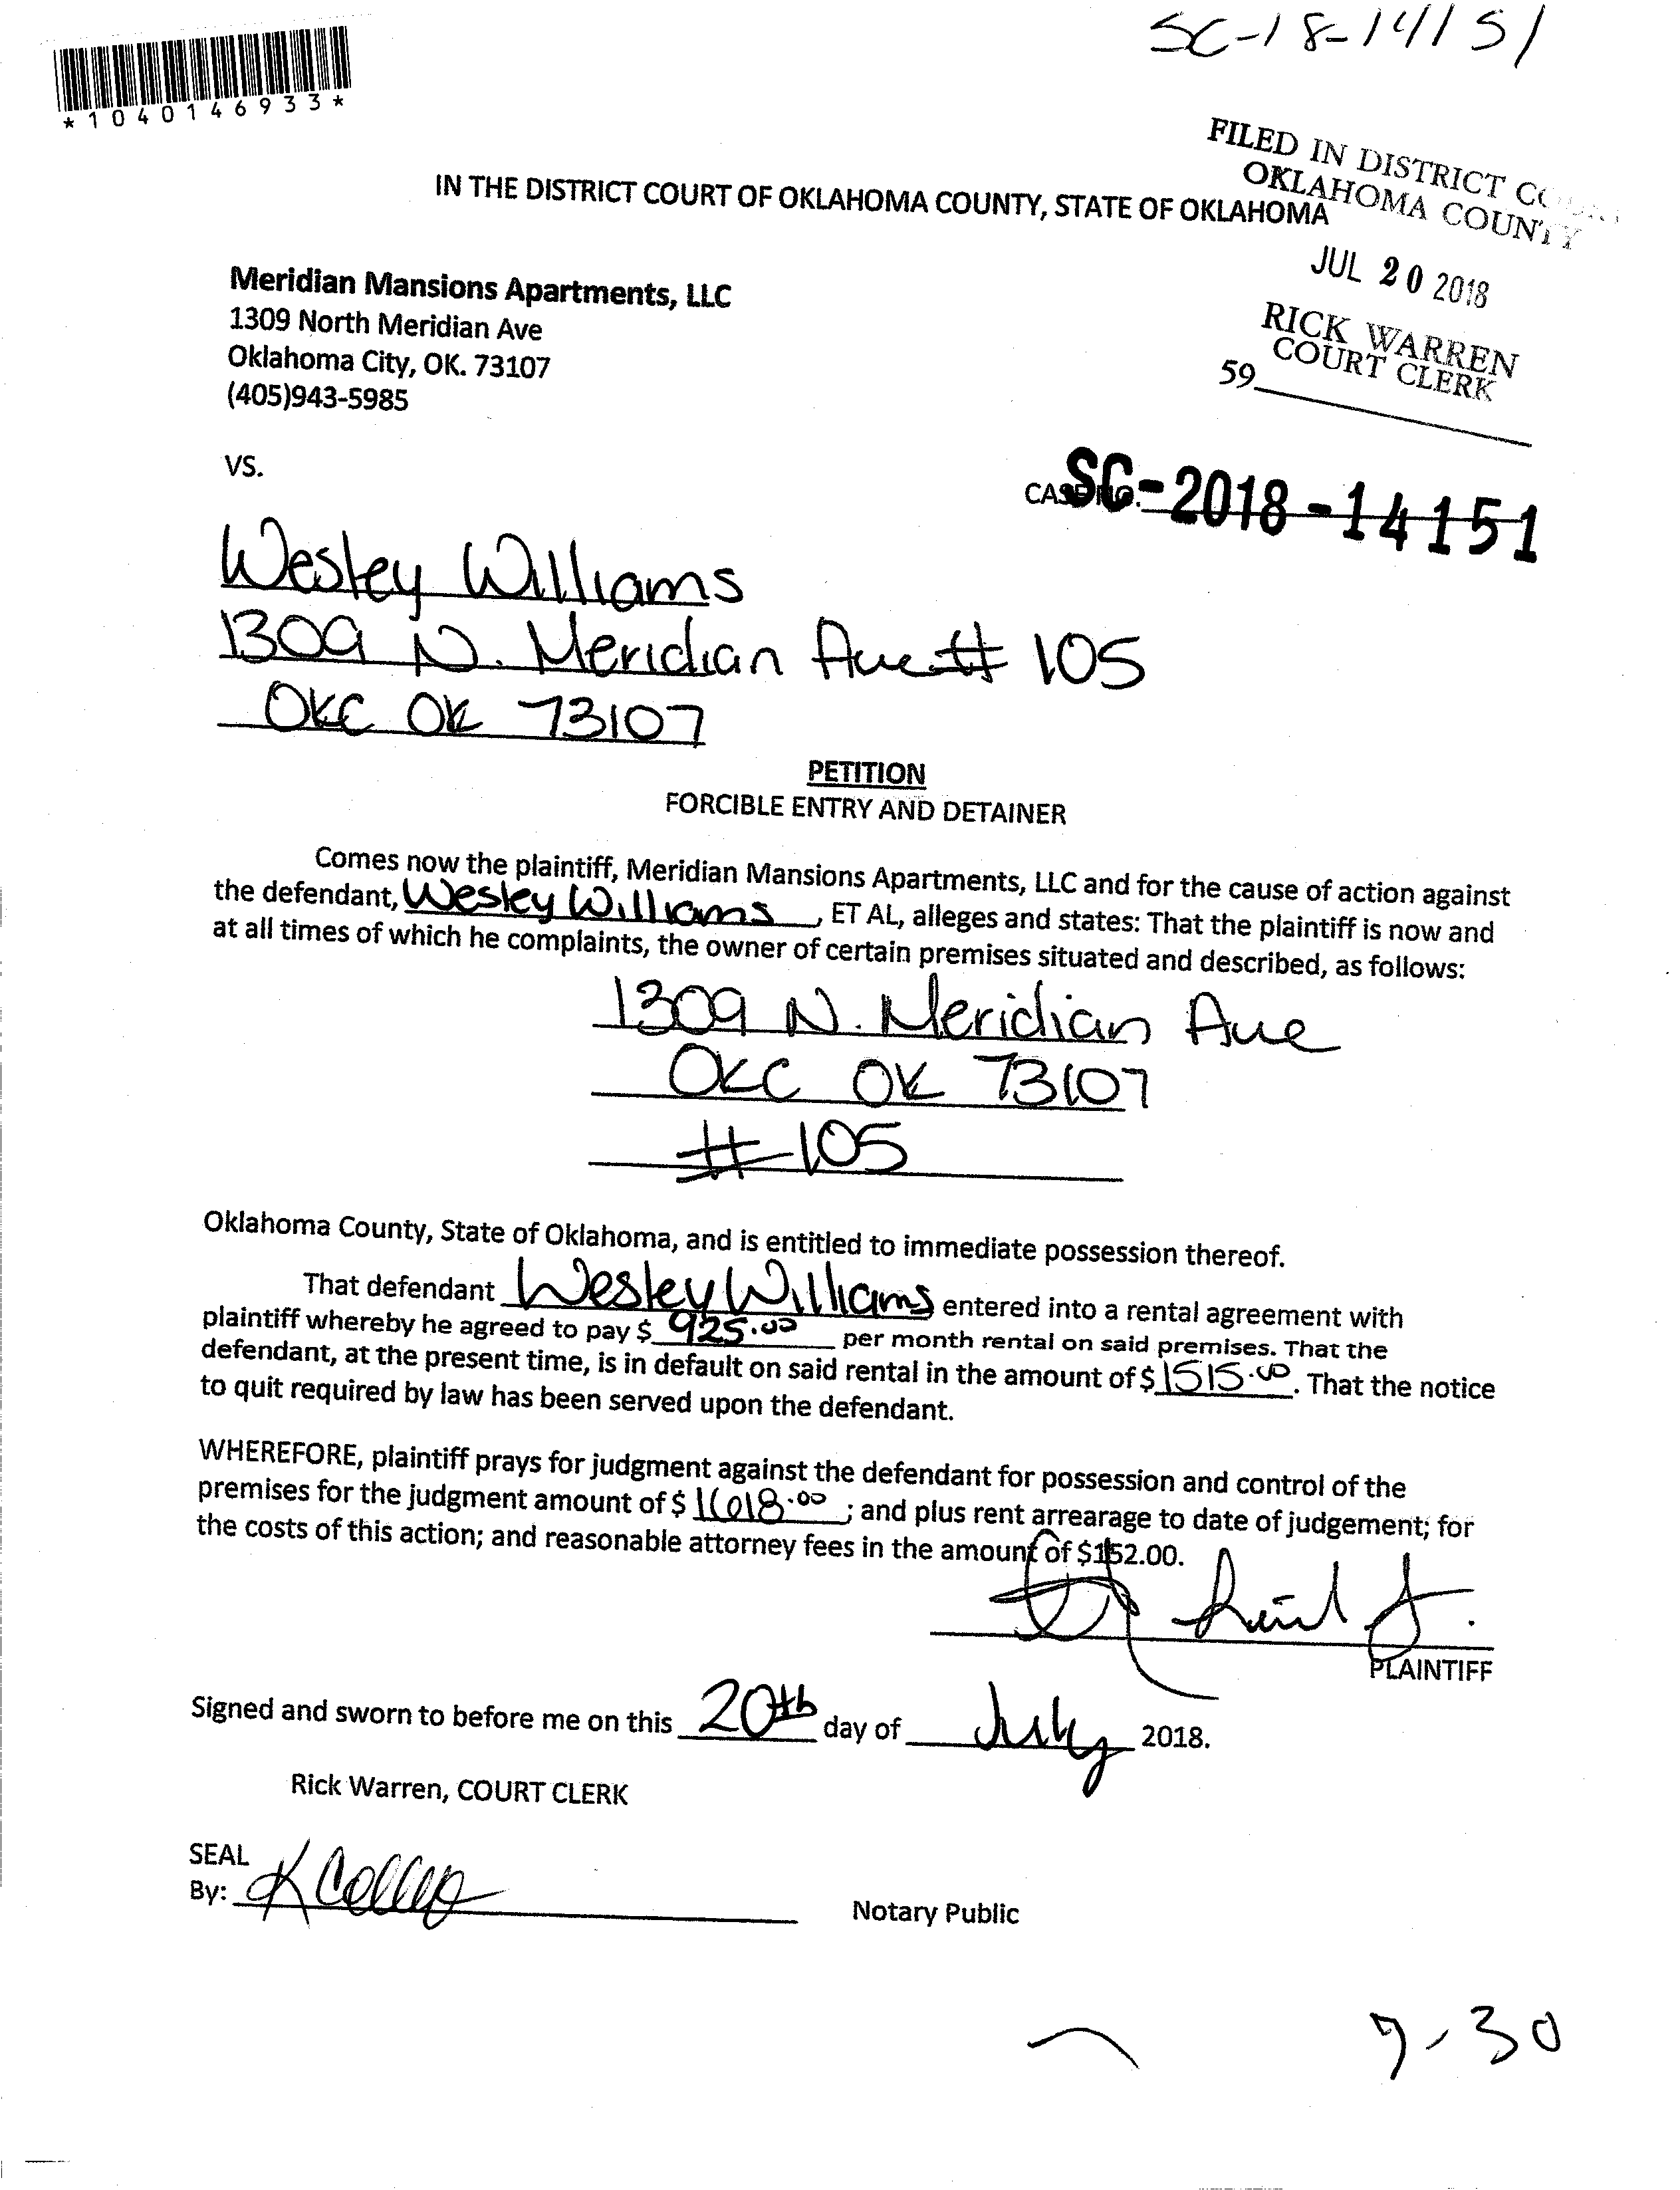 SC-18-14151
*1040146933*
FILED IN DISTRICT
OKLAHOMA COUNTY
IN THE DISTRICT COURT OF OKLAHOMA COUNTY, STATE OF OKLAHOMA
JUL 20 2018
Meridian Mansions Apartments, LLC
1309 North Meridian Ave
Oklahoma City, OK. 73107
(405)943-5985
RICK WARREN
COURT CLERK
59
VS.
CASE NO. SC-2018-14151
Wesley Williams
1309 N. Meridian Ave # 105
OKC OK 73107
PETITION
FORCIBLE ENTRY AND DETAINER
Comes now the plaintiff, Meridian Mansions Apartments, LLC and for the cause of action against
the defendant, Wesley Williams, ET AL, alleges and states: That the plaintiff is now and
at all times of which he complaints, the owner of certain premises situated and described, as follows:
1309 N. Meridian Ave
OKC OK 73107
# 105
Oklahoma County, State of Oklahoma, and is entitled to immediate possession thereof.
That defendant Wesley Williams entered into a rental agreement with
plaintiff whereby he agreed to pay $ 925.00 per month rental on said premises. That the
defendant, at the present time, is in default on said rental in the amount of $ 1515.00. That the notice
to quit required by law has been served upon the defendant.
WHEREFORE, plaintiff prays for judgment against the defendant for possession and control of the
premises for the judgment amount of $ 1618.00; and plus rent arrearage to date of judgement; for
the costs of this action; and reasonable attorney fees in the amount of $152.00.
PLAINTIFF
Signed and sworn to before me on this 20th day of July 2018.
Rick Warren, COURT CLERK
SEAL
By:
Notary Public
7-30